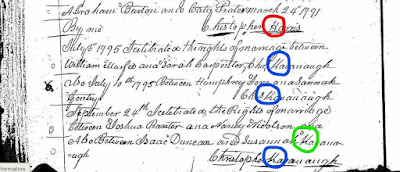 Abraham Burton and Caty Prater march 24th 1791
By me Christopher Harris
July 5th 1795 I celebrated the rights of marriage between
William and Sarah Carpenter, Chs Kavanaugh
also July 10th 1795 Between Humphrey Jones and Sannah
Gentry Chs Kavanaugh
September 24th I celebrated, the Rights of marriage
Between Joshua Baxter and Nancy Hiebson and
Also Between Isaac Duncan and Susannah Kavana-
ugh Christopher Kavanaugh
formation